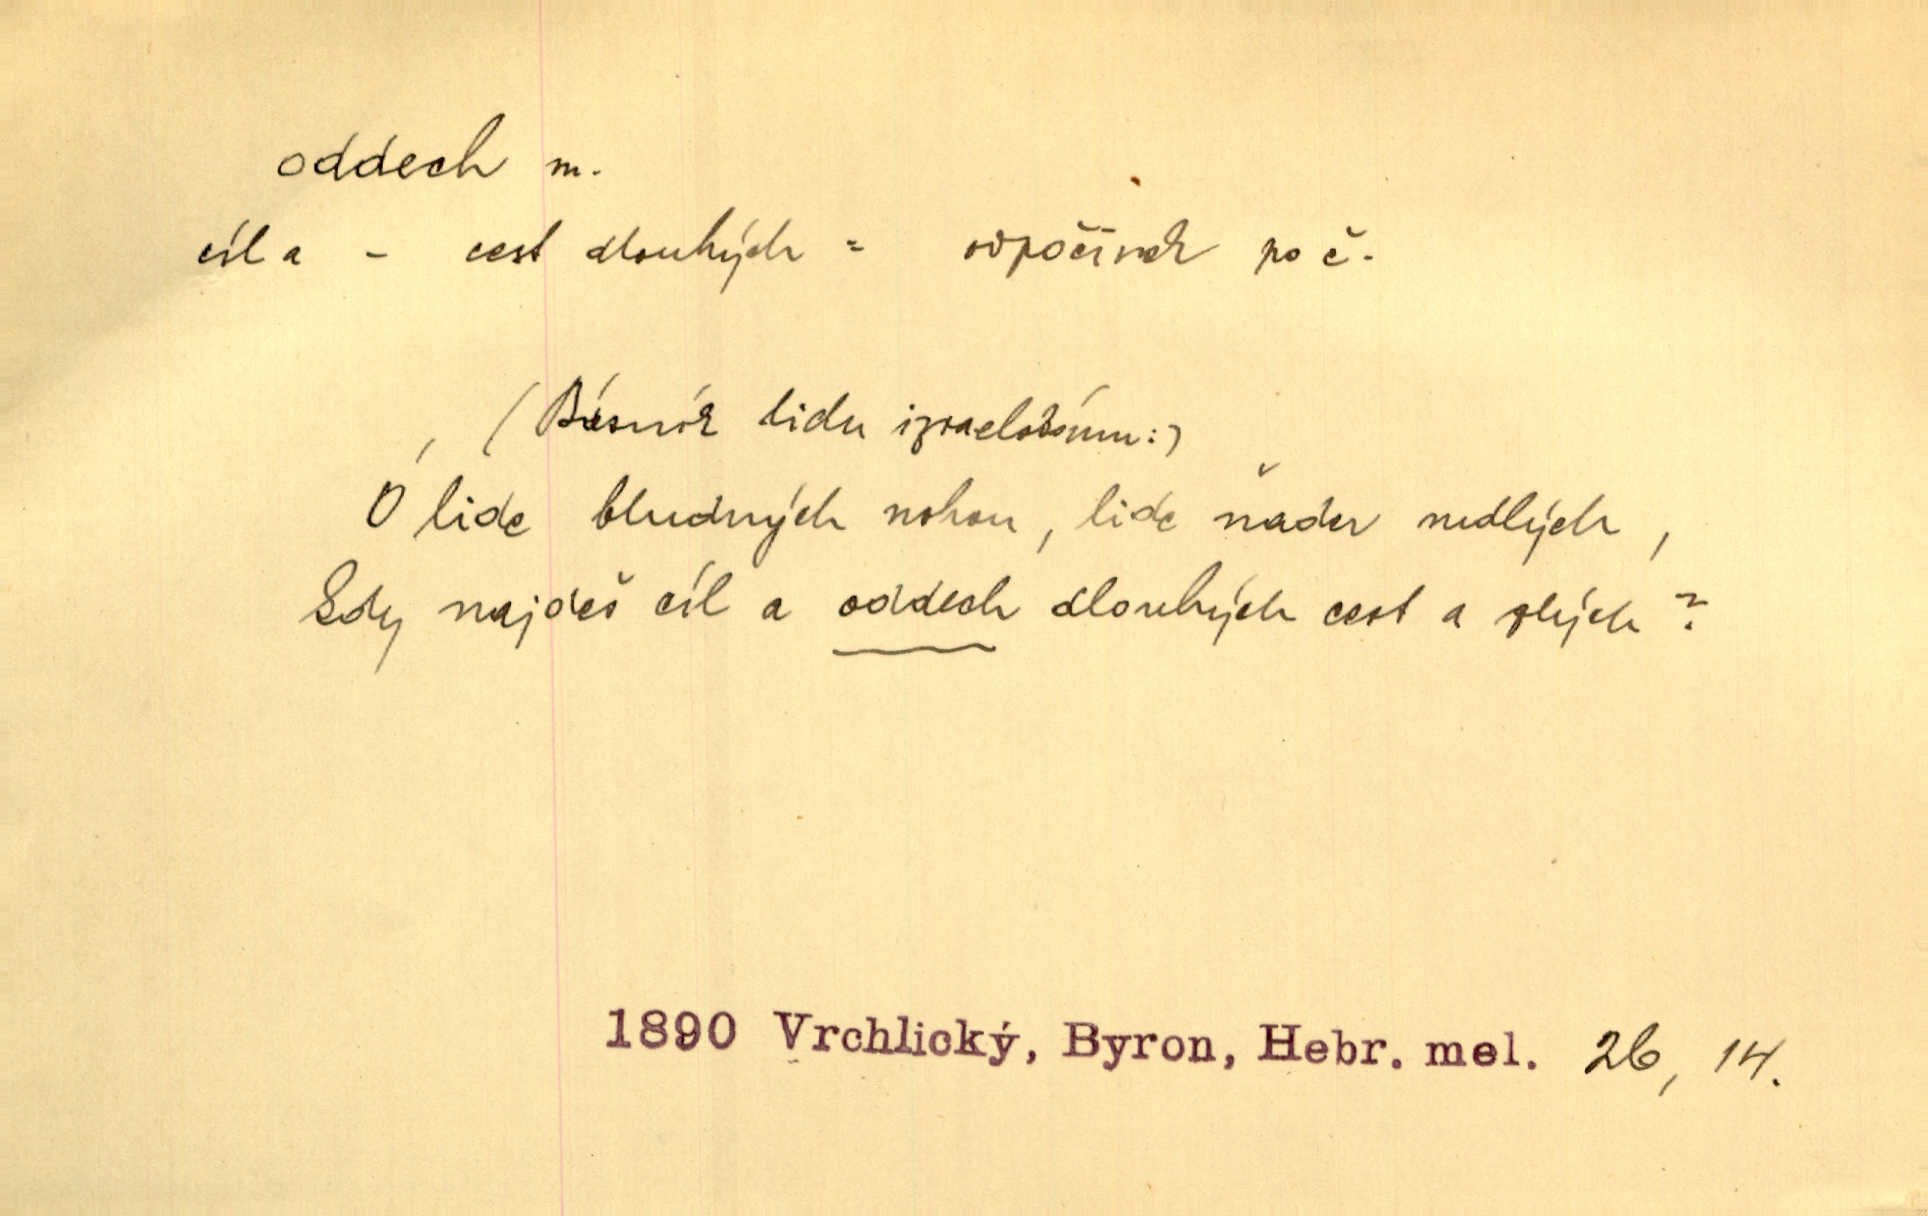 oddech m.
cíl a – cest dlouhých = odpočinek po č.
(Básník lidu izraelskému:)
Ó lide bludných nohou, lide ňader mdlých,
kdy najdeš cíl a oddech dlouhých cest a zlých?
1890 Vrchlický, Byron, Hebr. mel. 26, 14.